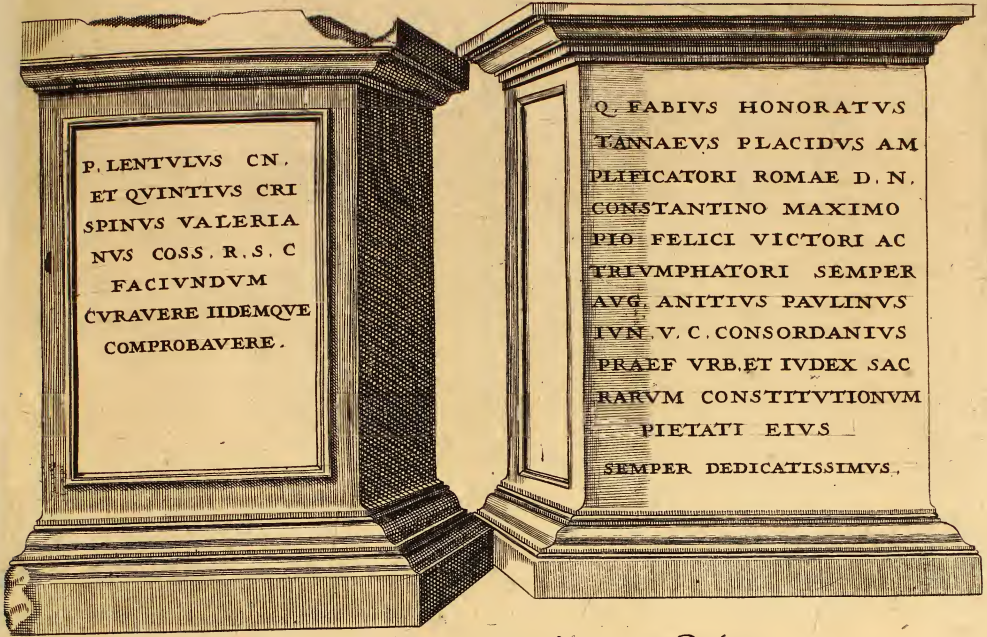 P. LENTVLVS CN.
ET QVINTIVS CRI
SPINVS VALERIA
NVS COSS. R. S. C
FACIVNDVM
CVRAVERE IIDEMQVE
COMPROBAVERE.
Q. FABIVS HONORATVS
TANNAEVS PLACIDVS AM
PLIFICATORI ROMAE D. N.
CONSTANTINO MAXIMO
PIO FELICI VICTORI AC
TRIVMPHATORI SEMPER
AVG. ANITIVS PAVLINVS
IVN. V. C. CONSORDANIVS
PRAEF VRB. ET IVDEX SAC
RARVM CONSTITVTIONVM
PIETATI EIVS
SEMPER DEDICATISSIMVS.